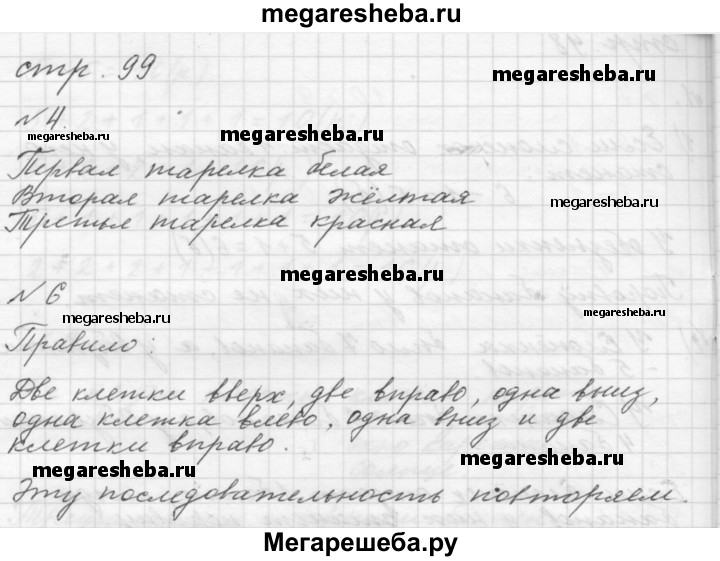 megaresheba.ru
стр. 99
megaresheba.ru
№ 4.
megaresheba.ru
megaresheba.ru
Первая тарелка белая
Вторая тарелка жёлтая
Третья тарелка красная
megaresheba.ru
№ 6
megaresheba.ru
megaresheba.ru
Правило:
Две клетки вверх, две вправо, одна вниз,
одна клетка влево, одна вниз и две
клетки вправо.
megaresheba.ru
megaresheba.ru
Эту последовательность повторяем.
Мегарешеба.ру